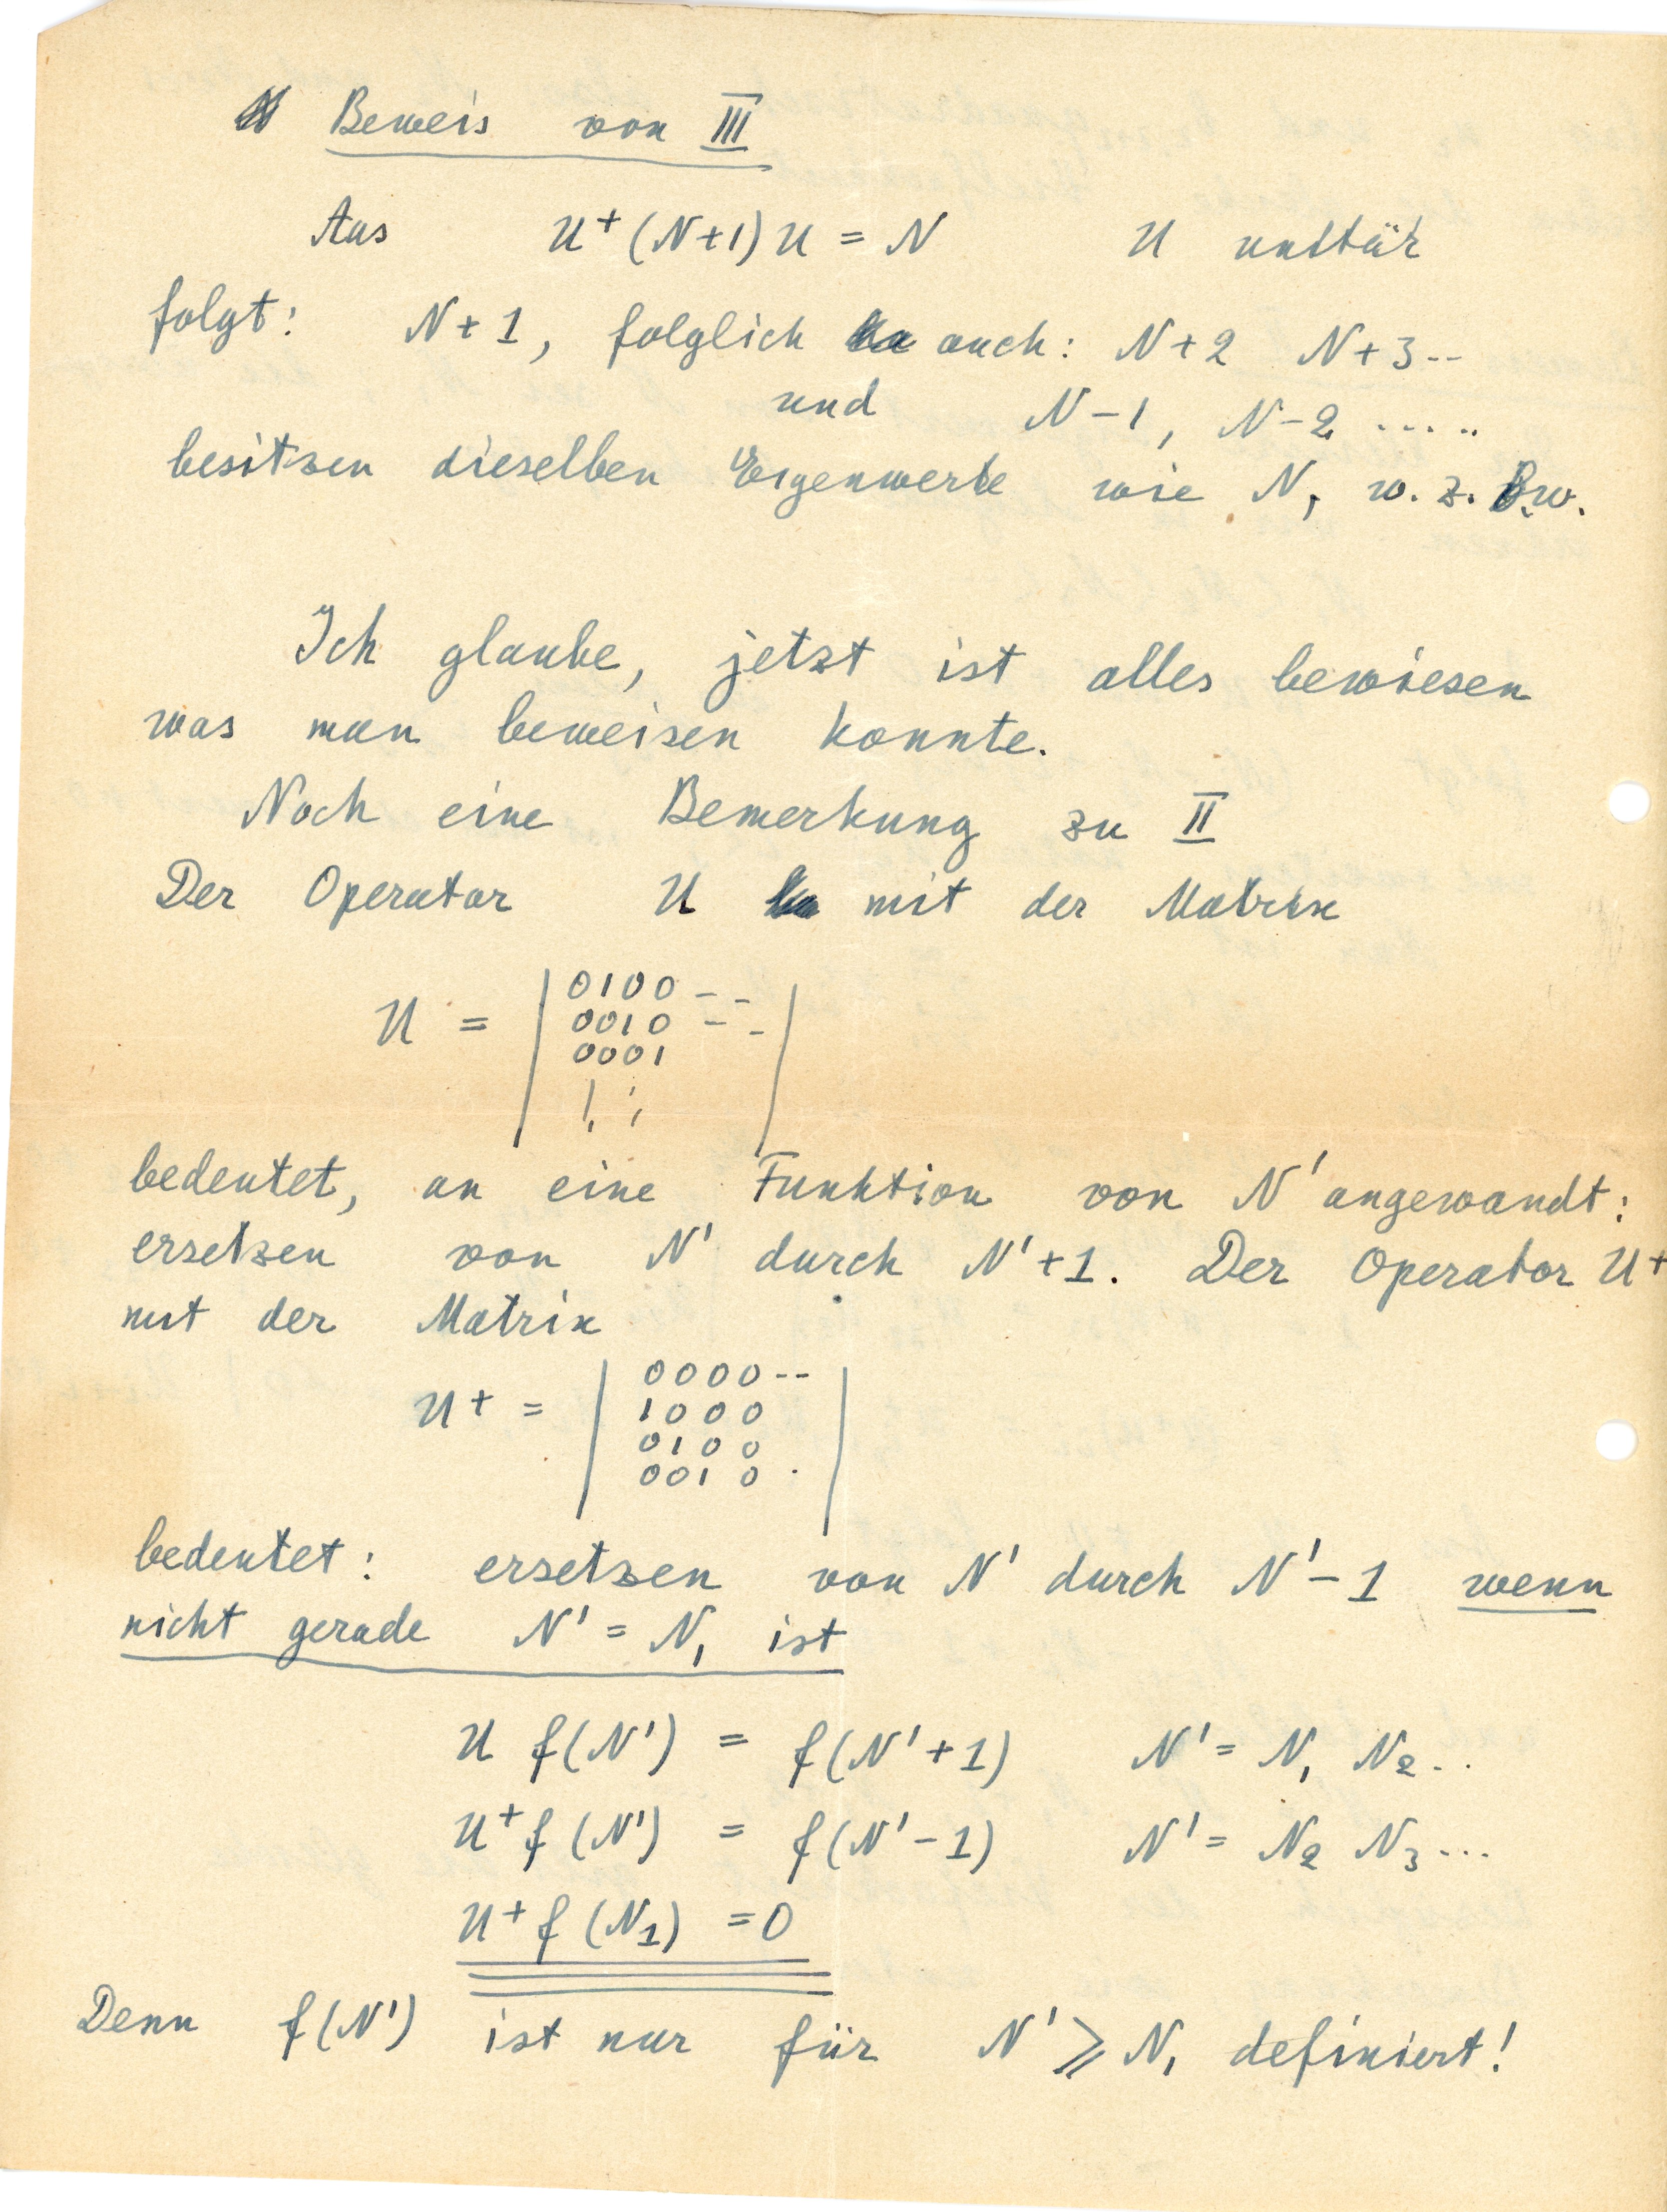 Beweis von III
Aus U⁺(N+1)U = N U unitär
folgt: N+1, folglich auch: N+2 N+3--
und N-1, N-2 .....
besitzen dieselben Eigenwerte wie N, w.z.B.w.
Ich glaube, jetzt ist alles bewiesen
was man beweisen konnte.
Noch eine Bemerkung zu II
Der Operator U mit der Matrix
0100 - -
U = 0010 - -
0001
bedeutet, an eine Funktion von N' angewandt:
ersetzen von N' durch N'+1. Der Operator U⁺
mit der Matrix
0000--
U⁺ = 1000
0100
0010 .
bedeutet: ersetzen von N' durch N'-1 wenn
nicht gerade N' = N₁ ist
U f(N') = f(N'+1) N' = N₁ N₂..
U⁺f(N') = f(N'-1) N' = N₂ N₃...
U⁺f(N₁) = 0
Denn f(N') ist nur für N' ≥ N₁ definiert!